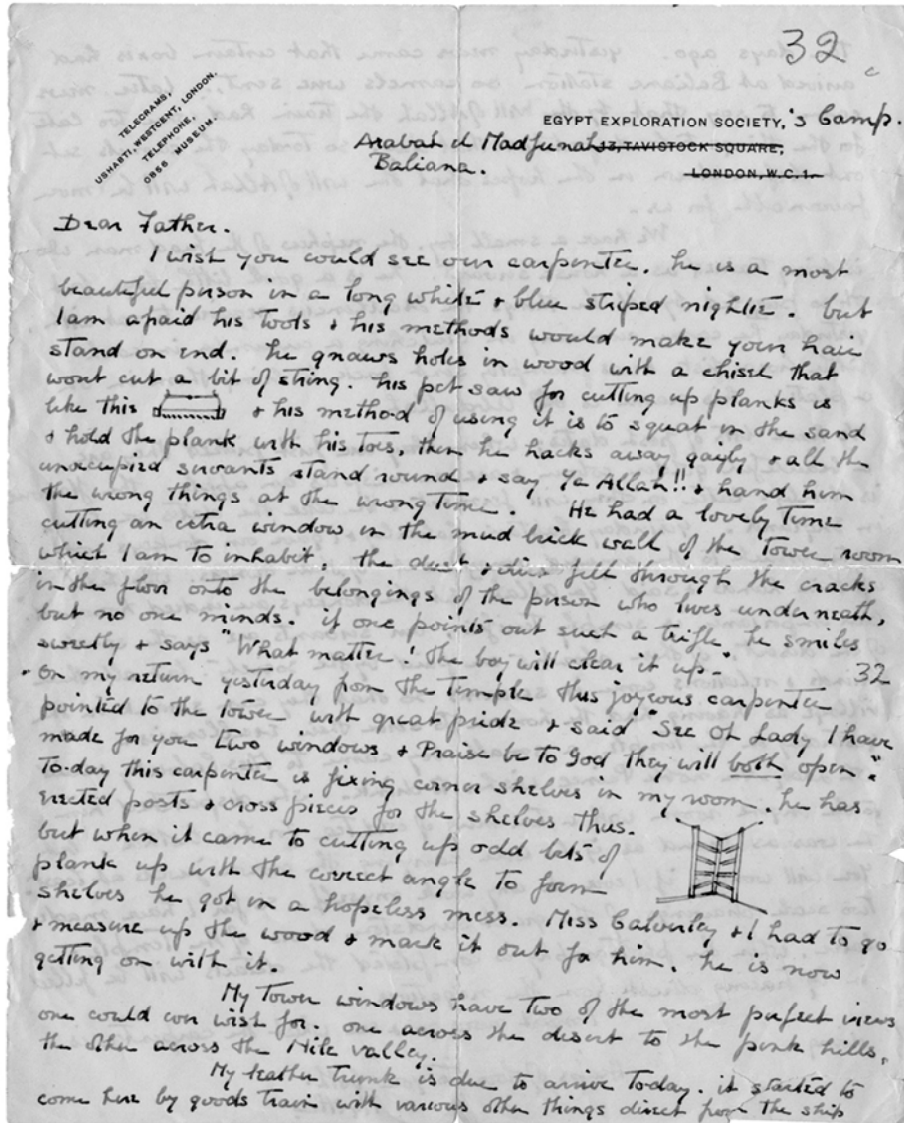 32
TELEGRAMS,
USHABTI, WESTCENT, LONDON.
TELEPHONE,
0866 MUSEUM.
EGYPT EXPLORATION SOCIETY,'s Camp.
Arabah el Madfunah 13, TAVISTOCK SQUARE,
Baliana.
LONDON, W.C.1.
Dear Father.
I wish you could see our carpenter. he is a most
beautiful person in a long white & blue striped nightie. but
I am afraid his tools & his methods would make your hair
stand on end. he gnaws holes in wood with a chisel that
wont cut a bit of string. his pet saw for cutting up planks is
like this & his method of using it is to squat in the sand
& hold the plank with his toes, then he hacks away gaily & all the
unoccupied servants stand round & say Ya Allah!! & hand him
the wrong things at the wrong time. He had a lovely time
cutting an extra window in the mud brick wall of the tower room
which I am to inhabit, the dust & dirt fell through the cracks
in the floor onto the belongings of the person who lives underneath,
but no one minds. if one points out such a trifle he smiles
sweetly & says "What matter! the boy will clear it up."
32
On my return yesterday from the temple this joyeous carpenter
pointed to the tower with great pride & said "See Oh Lady I have
made for you two windows & Praise be to God they will both open."
To-day this carpenter is fixing corner shelves in my room. he has
erected posts & cross pieces for the shelves thus.
but when it came to cutting up odd bits of
plank up with the correct angle to form
shelves he got in a hopeless mess. Miss Calverley & I had to go
& measure up the wood & mark it out for him. he is now
getting on with it.
My Tower windows have two of the most perfect views
one could ever wish for. one across the desert to the pink hills,
the other across the Nile valley.
My leather trunk is due to arrive today. it started to
come here by goods train with various other things direct from the ship